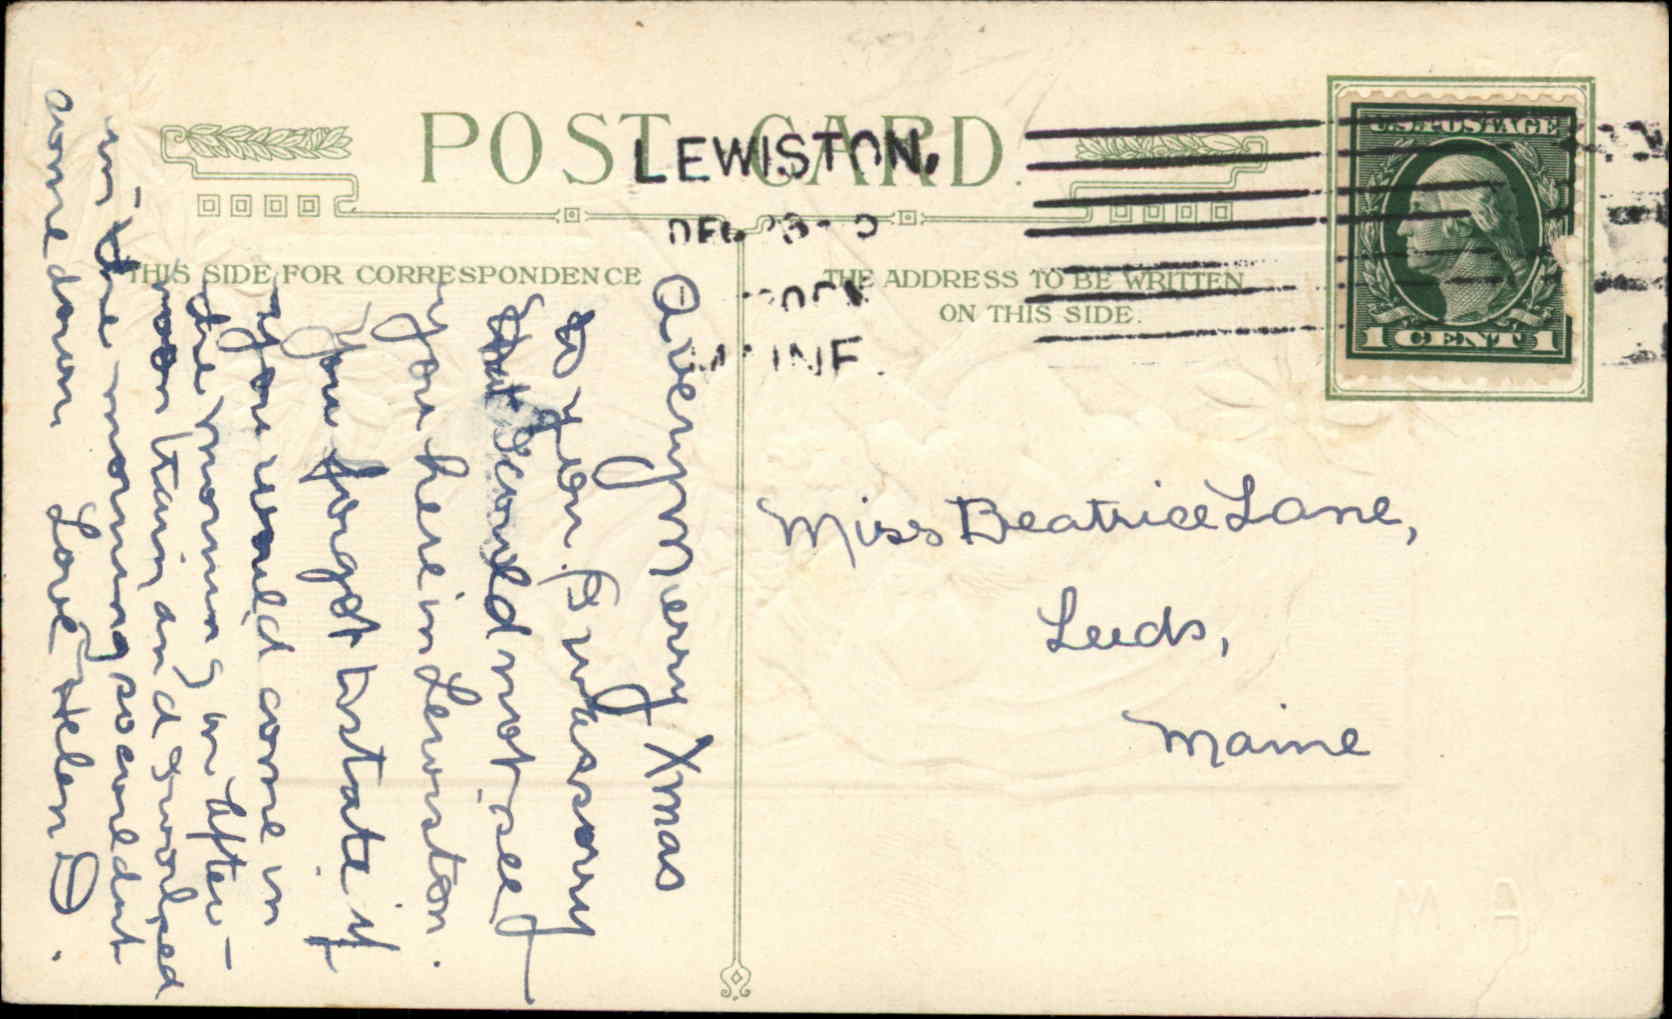 POST CARD
LEWISTON,
MAINE.
THIS SIDE FOR CORRESPONDENCE
THE ADDRESS TO BE WRITTEN
ON THIS SIDE.
U.S. POSTAGE
1 CENT 1
A very Merry Xmas
to you. I was sorry
that I could not see
you here in Lewiston.
You forgot to state if
you would come in
the morning or after-
noon train and I worked
in the morning so could not
come down Love Helen D.
Miss Beatrice Lane,
Leeds,
Maine
A M